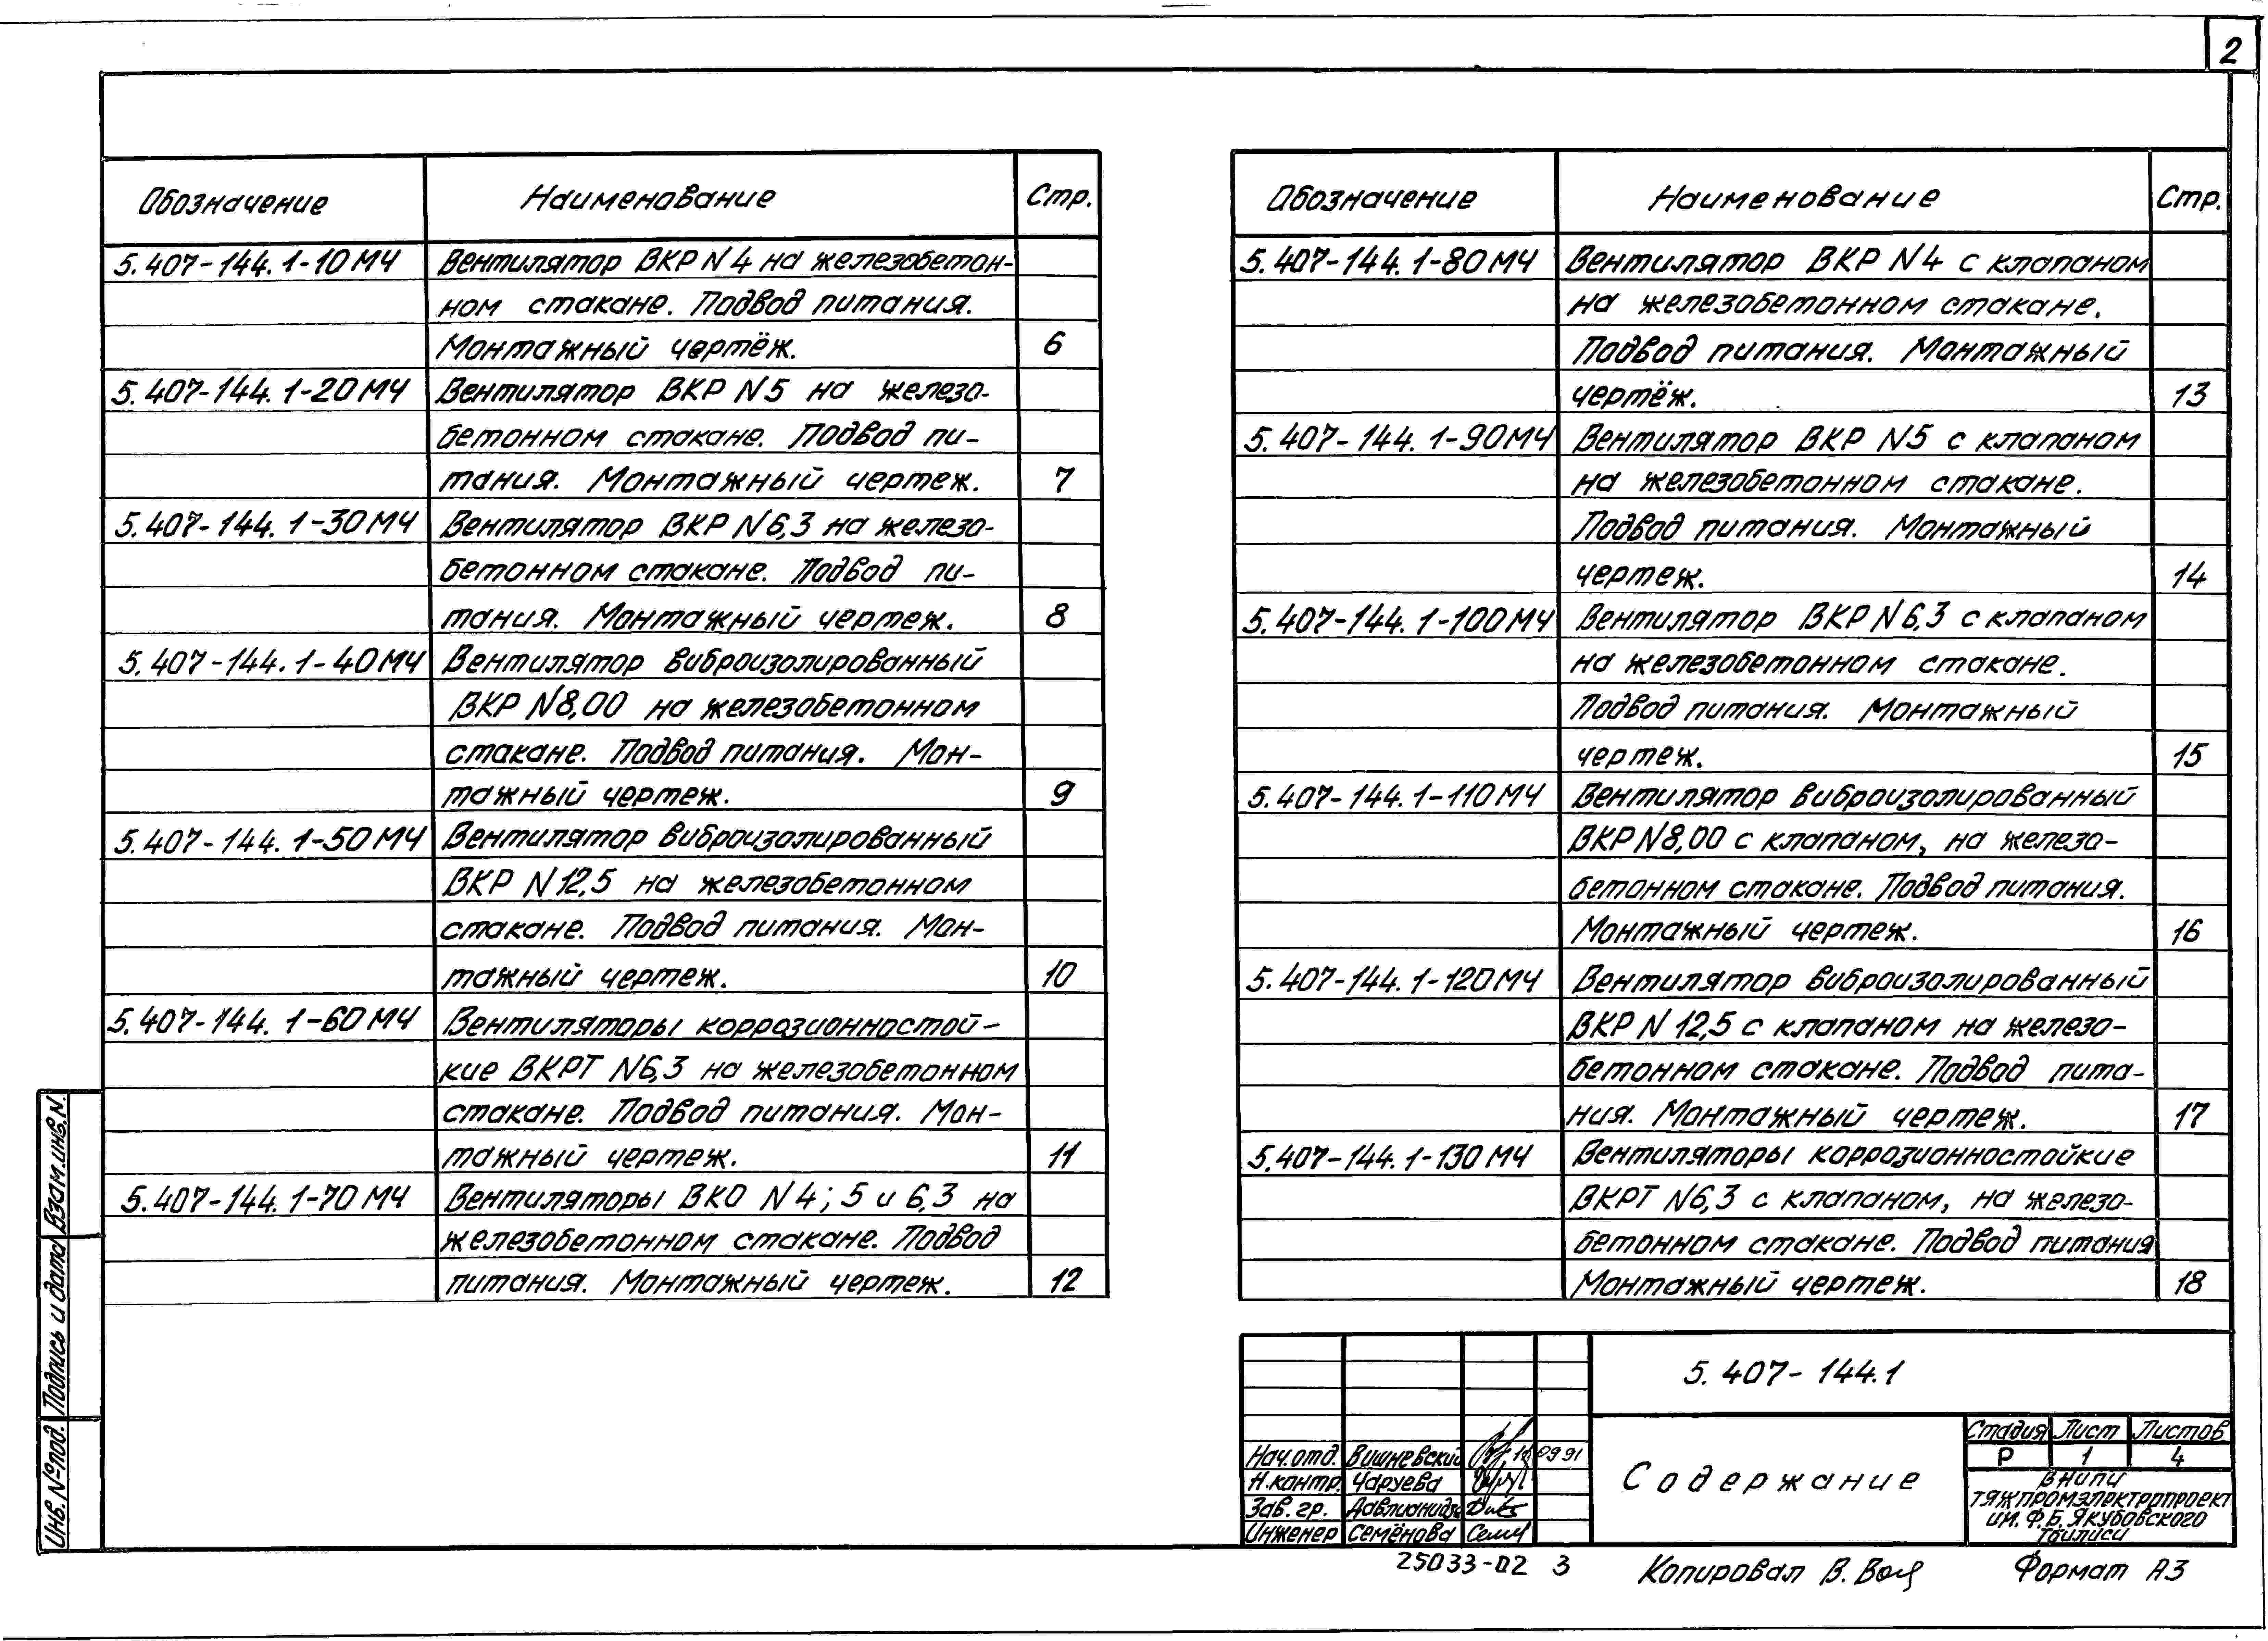 2
Обозначение Наименование Стр.
5.407-144.1-10МЧ Вентилятор ВКР N4 на железобетон-
ном стакане. Подвод питания.
Монтажный чертёж. 6
5.407-144.1-20МЧ Вентилятор ВКР N5 на железо-
бетонном стакане. Подвод пи-
тания. Монтажный чертеж. 7
5.407-144.1-30МЧ Вентилятор ВКР N6,3 на железо-
бетонном стакане. Подвод пи-
тания. Монтажный чертеж. 8
5.407-144.1-40МЧ Вентилятор виброизолированный
ВКР N8,00 на железобетонном
стакане. Подвод питания. Мон-
тажный чертеж. 9
5.407-144.1-50МЧ Вентилятор виброизолированный
ВКР N12,5 на железобетонном
стакане. Подвод питания. Мон-
тажный чертеж. 10
5.407-144.1-60МЧ Вентиляторы коррозионностой-
кие ВКРТ N6,3 на железобетонном
стакане. Подвод питания. Мон-
тажный чертеж. 11
5.407-144.1-70МЧ Вентиляторы ВКО N4; 5 и 6,3 на
железобетонном стакане. Подвод
питания. Монтажный чертеж. 12
Обозначение Наименование Стр.
5.407-144.1-80МЧ Вентилятор ВКР N4 с клапаном
на железобетонном стакане.
Подвод питания. Монтажный
чертёж. 13
5.407-144.1-90МЧ Вентилятор ВКР N5 с клапаном
на железобетонном стакане.
Подвод питания. Монтажный
чертеж. 14
5.407-144.1-100МЧ Вентилятор ВКР N6,3 с клапаном
на железобетонном стакане.
Подвод питания. Монтажный
чертеж. 15
5.407-144.1-110МЧ Вентилятор виброизолированный
ВКР N8,00 с клапаном, на железо-
бетонном стакане. Подвод питания.
Монтажный чертеж. 16
5.407-144.1-120МЧ Вентилятор виброизолированный
ВКР N 12,5 с клапаном на железо-
бетонном стакане. Подвод пита-
ния. Монтажный чертеж. 17
5.407-144.1-130МЧ Вентиляторы коррозионностойкие
ВКРТ N6,3 с клапаном, на железо-
бетонном стакане. Подвод питания
Монтажный чертеж. 18
Инв. №под. Подпись и дата Взам.инв.N.
5.407-144.1
Нач.отд. Вишневский 09 91
Н.контр. Чаруева
Зав. гр. Давлианидзе
Инженер Семёнова
Содержание
Стадия Лист Листов
Р 1 4
ВНИПИ
ТЯЖПРОМЭЛЕКТРОПРОЕКТ
им. Ф.Б. Якубовского
Тбилиси
25033-02 3
Копировал В.
Формат А3